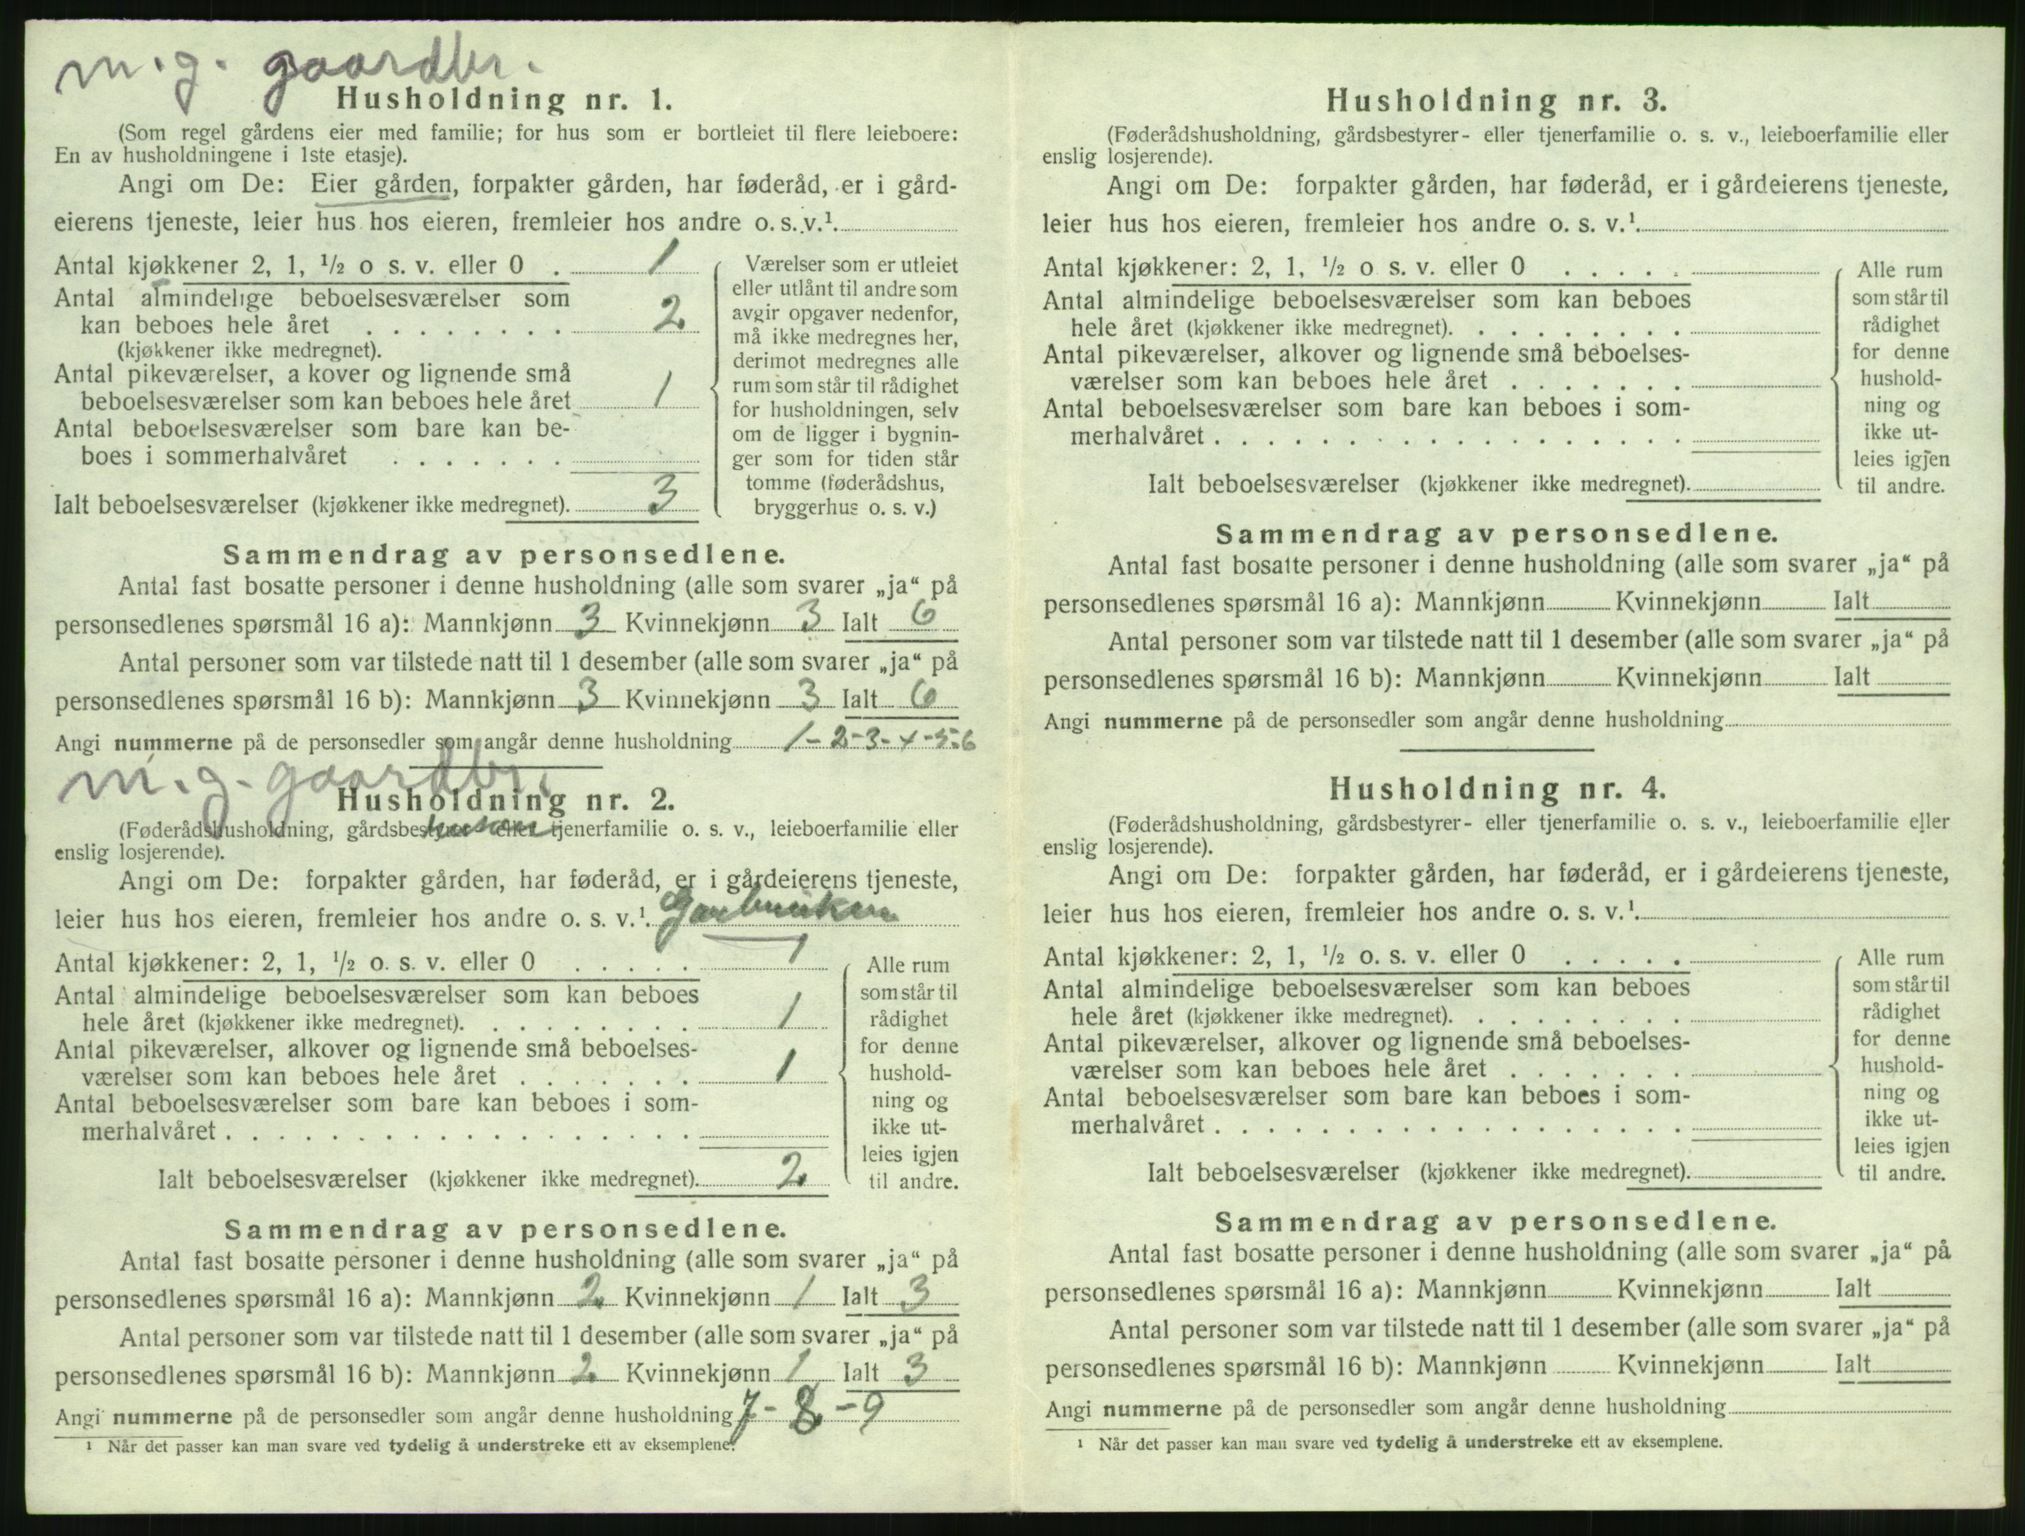 m. g. gaardbr.
Husholdning nr. 1.
(Som regel gårdens eier med familie; for hus som er bortleiet til flere leieboere:
En av husholdningene i 1ste etasje).
Angi om De: Eier gården, forpakter gården, har føderåd, er i gård-
eierens tjeneste, leier hus hos eieren, fremleier hos andre o. s. v.¹.
Antal kjøkkener 2, 1, ½ o s. v. eller 0 . 1
Antal almindelige beboelsesværelser som
kan beboes hele året . . . . . . . . 2
(kjøkkener ikke medregnet).
Antal pikeværelser, a kover og lignende små
beboelsesværelser som kan beboes hele året 1
Antal beboelsesværelser som bare kan be-
boes i sommerhalvåret . . . . . . .
Ialt beboelsesværelser (kjøkkener ikke medregnet). 3
Værelser som er utleiet
eller utlånt til andre som
avgir opgaver nedenfor,
må ikke medregnes her,
derimot medregnes alle
rum som står til rådighet
for husholdningen, selv
om de ligger i bygnin-
ger som for tiden står
tomme (føderådshus,
bryggerhus o. s. v.)
Sammendrag av personsedlene.
Antal fast bosatte personer i denne husholdning (alle som svarer „ja“ på
personsedlenes spørsmål 16 a): Mannkjønn 3 Kvinnekjønn 3 Ialt 6
Antal personer som var tilstede natt til 1 desember (alle som svarer „ja“ på
personsedlenes spørsmål 16 b): Mannkjønn 3 Kvinnekjønn 3 Ialt 6
Angi nummerne på de personsedler som angår denne husholdning 1-2-3-4-5-6
m. g. gaardbr.
Husholdning nr. 2.
(Føderådshusholdning, gårdsbestyrer- eller tjenerfamilie o. s. v., leieboerfamilie eller
enslig losjerende).
Angi om De: forpakter gården, har føderåd, er i gårdeierens tjeneste,
leier hus hos eieren, fremleier hos andre o. s. v.¹.
Antal kjøkkener: 2, 1, ½ o. s. v. eller 0 . . . . . 1
Antal almindelige beboelsesværelser som kan beboes
hele året (kjøkkener ikke medregnet). . . . . . . . . 1
Antal pikeværelser, alkover og lignende små beboelses-
værelser som kan beboes hele året . . . . . . . 1
Antal beboelsesværelser som bare kan beboes i som-
merhalvåret . . . . . . . . . . . . . . . . . .
Ialt beboelsesværelser (kjøkkener ikke medregnet). 2
Alle rum
som står til
rådighet
for denne
hushold-
ning og
ikke ut-
leies igjen
til andre.
Sammendrag av personsedlene.
Antal fast bosatte personer i denne husholdning (alle som svarer „ja“ på
personsedlenes spørsmål 16 a): Mannkjønn 2 Kvinnekjønn 1 Ialt 3
Antal personer som var tilstede natt til 1 desember (alle som svarer „ja“ på
personsedlenes spørsmål 16 b): Mannkjønn 2 Kvinnekjønn 1 Ialt 3
Angi nummerne på de personsedler som angår denne husholdning 7-8-9
¹ Når det passer kan man svare ved tydelig å understreke ett av eksemplene.
Husholdning nr. 3.
(Føderådshusholdning, gårdsbestyrer- eller tjenerfamilie o. s. v., leieboerfamilie eller
enslig losjerende).
Angi om De: forpakter gården, har føderåd, er i gårdeierens tjeneste,
leier hus hos eieren, fremleier hos andre o. s. v.¹.
Antal kjøkkener: 2, 1, ½ o s. v. eller 0 . . . . .
Antal almindelige beboelsesværelser som kan beboes
hele året (kjøkkener ikke medregnet). . . . . . . . .
Antal pikeværelser, alkover og lignende små beboelses-
værelser som kan beboes hele året . . . . . . .
Antal beboelsesværelser som bare kan beboes i som-
merhalvåret . . . . . . . . . . . . . . . . . .
Ialt beboelsesværelser (kjøkkener ikke medregnet).
Alle rum
som står til
rådighet
for denne
hushold-
ning og
ikke ut-
leies igjen
til andre.
Sammendrag av personsedlene.
Antal fast bosatte personer i denne husholdning (alle som svarer „ja“ på
personsedlenes spørsmål 16 a): Mannkjønn Kvinnekjønn Ialt
Antal personer som var tilstede natt til 1 desember (alle som svarer „ja“ på
personsedlenes spørsmål 16 b): Mannkjønn Kvinnekjønn Ialt
Angi nummerne på de personsedler som angår denne husholdning
Husholdning nr. 4.
(Føderådshusholdning, gårdsbestyrer- eller tjenerfamilie o. s. v., leieboerfamilie eller
enslig losjerende).
Angi om De: forpakter gården, har føderåd, er i gårdeierens tjeneste,
leier hus hos eieren, fremleier hos andre o. s. v.¹.
Antal kjøkkener: 2, 1, ½ o. s. v. eller 0 . . . . .
Antal almindelige beboelsesværelser som kan beboes
hele året (kjøkkener ikke medregnet). . . . . . . . .
Antal pikeværelser, alkover og lignende små beboelses-
værelser som kan beboes hele året . . . . . . .
Antal beboelsesværelser som bare kan beboes i som-
merhalvåret . . . . . . . . . . . . . . . . . .
Ialt beboelsesværelser (kjøkkener ikke medregnet).
Alle rum
som står til
rådighet
for denne
hushold-
ning og
ikke ut-
leies igjen
til andre.
Sammendrag av personsedlene.
Antal fast bosatte personer i denne husholdning (alle som svarer „ja“ på
personsedlenes spørsmål 16 a): Mannkjønn Kvinnekjønn Ialt
Antal personer som var tilstede natt til 1 desember (alle som svarer „ja“ på
personsedlenes spørsmål 16 b): Mannkjønn Kvinnekjønn Ialt
Angi nummerne på de personsedler som angår denne husholdning
¹ Når det passer kan man svare ved tydelig å understreke ett av eksemplene.